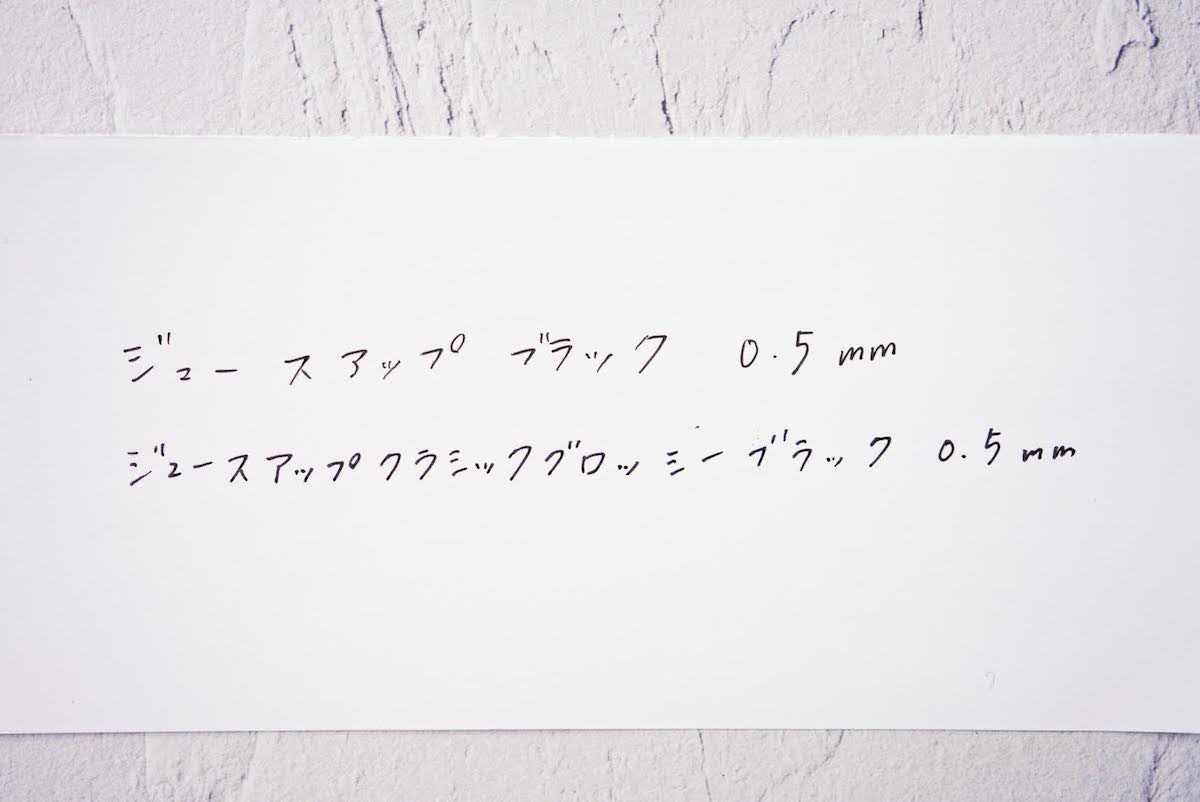 ジュースアップ ブラック 0.5 mm
ジュースアップクラシックグロッシーブラック 0.5 mm